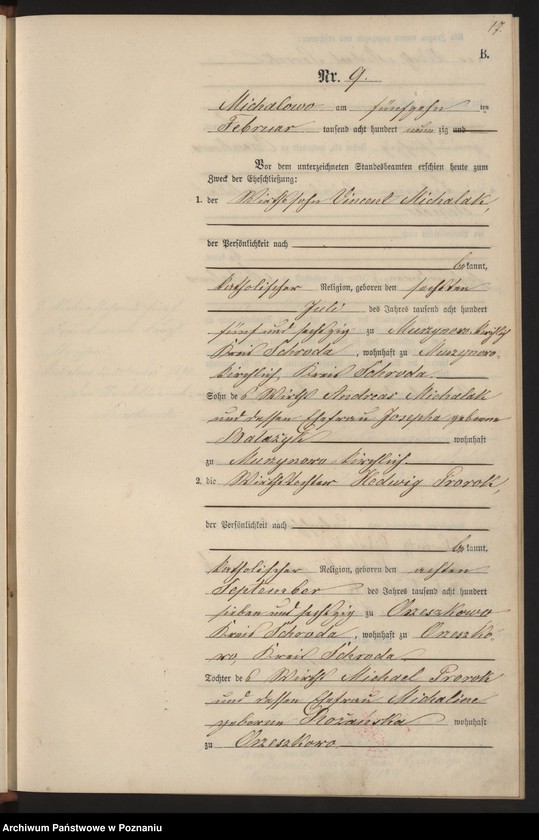 17.
B.
Nr. 9.
Michalowo am fünfzehn ten
Februar tausend acht hundert neun zig und
Vor dem unterzeichneten Standesbeamten erschien heute zum
Zweck der Eheschließung:
1. der Wirthssohn Vincent Michalak,
der Persönlichkeit nach
bekannt,
katholischer Religion, geboren den sechsten
Juli des Jahres tausend acht hundert
fünf und sechzig zu Murzynowo kirchlich
Kreis Schroda, wohnhaft zu Murzynowo
kirchlich, Kreis Schroda
Sohn des Wirths Andreas Michalak
und dessen Ehefrau Josepha geborne
wohnhaft
zu Murzynowo kirchlich
2. die Wirthstochter Hedwig Prorok,
der Persönlichkeit nach
bekannt,
katholischer Religion, geboren den achten
September des Jahres tausend acht hundert
sieben und sechzig zu Orzeszkowo
Kreis Schroda, wohnhaft zu Orzeszko-
wo, Kreis Schroda
Tochter des Wirths Michael Prorok
und dessen Ehefrau Michaline
geborne Rożańska wohnhaft
zu Orzeszkowo
Archiwum Państwowe w Poznaniu